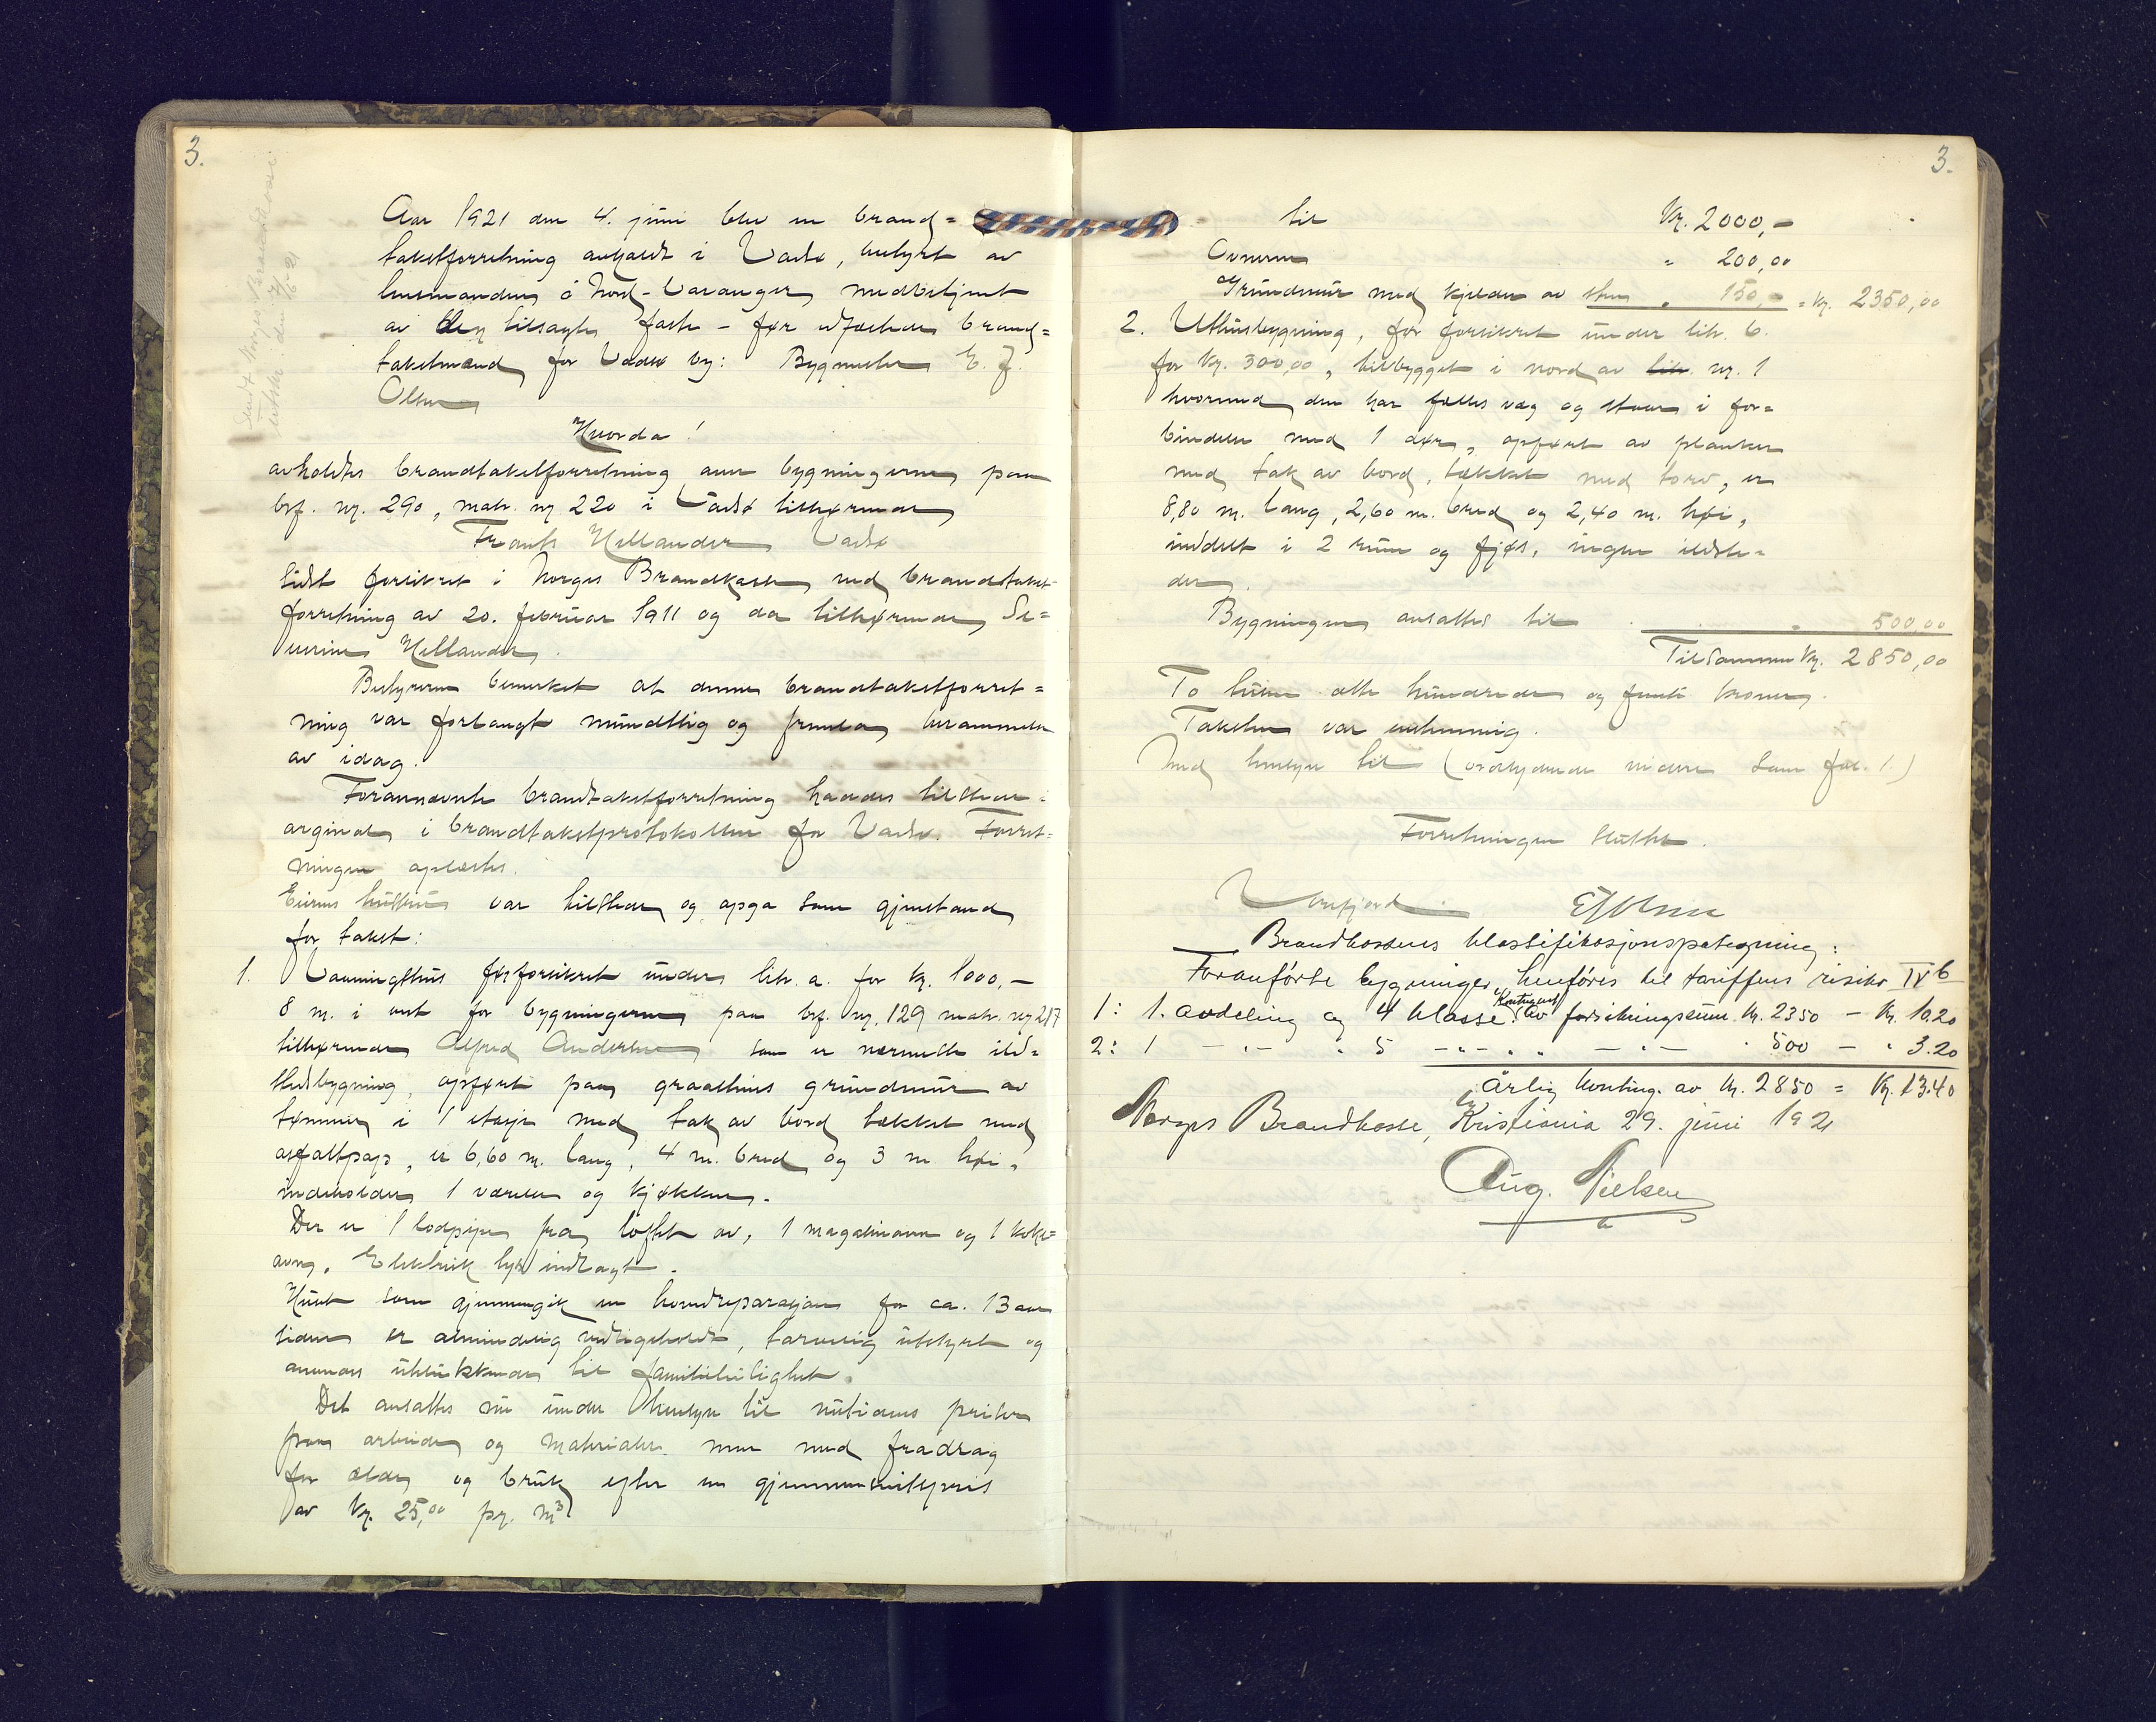 3.
Sendt Norges Brandkasse
utskr. den 7/6 21
Aar 1921 den 4. juni blev en brand=
takstforretning avholdt i Vadsø, bestyrt av
lensmanden i Nord-Varanger med betjent
av den tilsagte faste – før edfæstede brand=
takstmænd for Vadsø by: Bygmester E. J.
Olsen
Hvorda!
avholdtes brandtakstforretning over bygningerne paa
brf. nr. 290, matr. nr 220 i Vadsø tilhørende
Frants Hellander Vadsø
sidst forsikret i Norges Brandkasse ved brandtakst-
forretning av 20. februar 1911 og da tilhørende Se=
verine Hellander.
Bestyreren bemerket at denne brandtakstforret=
ning var forlangt mundtlig og fremla berammelse
av idag.
Forannævnte brandtakstforretning haddes tilstede
original i brandtakstprotokollen for Vadsø. Forret=
ningen oplæstes.
Eierens hustru var tilstede og opga som gjenstand
for takst:
1. Vaaningshus før forsikret under litr. a. for kr. 1000,-
8 m. i vest for bygningerne paa brf. nr. 129 matr. nr 217
tilhørende Alfred Andersen som er nærmeste ild=
stedsbygning, opført paa graastens grundmur av
tømmer i 1 etasje med tak av bord tækket med
asfaltpap, er 6,60 m. lang, 4 m. bred og 3 m høi,
indeholder 1 værelse og kjøkken.
Der er 1 lodpipe fra loftet av, 1 magasinovn og 1 koke=
ovn. Elektrisk lys indlagt.
Huset som gjennemgik en hovedreparasjon for ca. 13 aar
siden er almindelig vedligeholdt, tarvelig utstyrt og
ansees utelukkende til familieleilighet.
Det ansattes nu under hensyn til nutidens priser
paa arbeide og materialer men med fradrag
for ælde og bruk efter en gjennemsnitspris
av kr. 25,00 pr. m3
3.
til Kr. 2000,-
Ovnene " 200,00
Grundmur med kjelder av sten " 150,- = kr. 2350,00
2. Uthusbygning, før forsikret under litr. b.
for kr. 300,00, tilbygget i nord av litr. nr. 1
hvormed den har fælles væg og staar i for=
bindelse med 1 dør, opført av planker
med tak av bord, tækket med torv, er
8,80 m. lang, 2,60 m. bred og 2,40 m. høi,
inddelt i 2 rum og fjøs, ingen ildste=
der.
Bygningen ansattes til " 500,00
Tilsammen kr. 2850,00
To tusen otte hundrede og femti kroner.
Taksten var enstemmig.
Med hensyn til (ordlydende videre som fol. 1.)
Forretningen sluttet.
E J Olsen
Brandkassens klassifikasjonspategning:
Foranførte bygninger henføres til tariffens risiko IV b
1: 1. avdeling og 4 klasse. Kontingent av forsikringssum kr. 2350 – kr. 10.20
2: 1 – " – " 5 – " – " " – " – " 500 – " 3.20
Årlig konting. av kr. 2850 = kr. 13.40
Norges Brandkasse, Kristiania 29. juni 1921
Aug. Nielsen